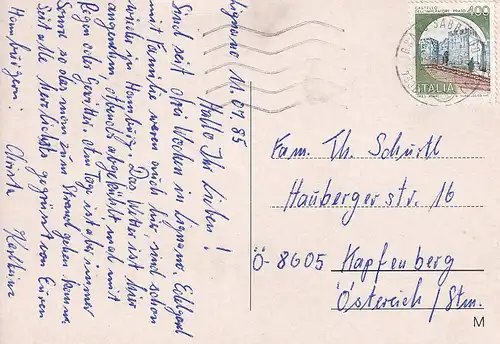 Lignano, 11.07.85
Hallo Ihr Lieben!
Sind seit drei Wochen in Lignano,
mit Familie wenn auch hier und schon
wieder in Hamburg. Das Wetter ist hier
angenehm, abends abgekühlt mal mit
Regen oder Gewitter, am Tag ist aber immer
Sonne so das man zum Strand gehen kann.
Seit alle herzlichst gegrüsst von Euren
Hamburgern.
400
ITALIA
Fam. Th. Schurtl
Haubergerstr. 16
Ö-8605 Kapfenberg
Österreich/Stm.
M